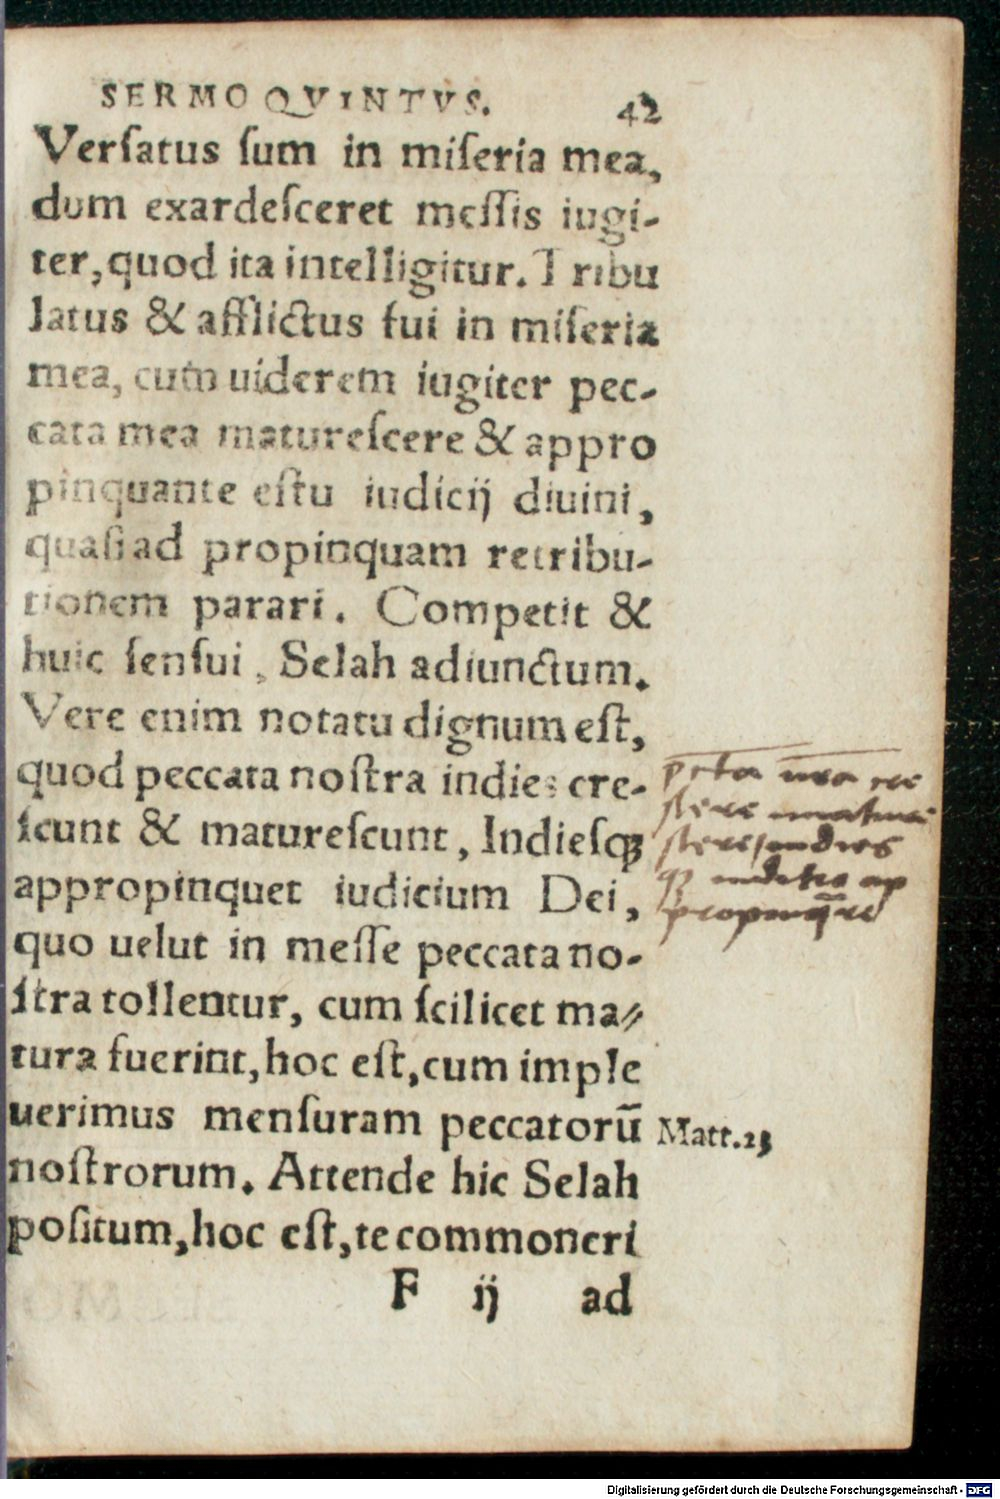 SERMO QVINTVS. 42
Verſatus ſum in miſeria mea,
dum exardeſceret meſſis iugi-
ter, quod ita intelligitur. Tribu
latus & afflictus fui in miſeria
mea, cum uiderem iugiter pec-
cata mea matureſcere & appro
pinquante eſtu iudicij diuini,
quaſi ad propinquam retribu-
tionem parari. Competit &
huic ſenſui, Selah adiunctum.
Vere enim notatu dignum eſt,
quod peccata noſtra indies cre-
ſcunt & matureſcunt, Indieſqꝫ
appropinquet iudicium Dei,
quo uelut in meſſe peccata no-
ſtra tollentur, cum ſcilicet ma-
tura fuerint, hoc eſt, cum imple
uerimus menſuram peccatorū
noſtrorum. Attende hic Selah
poſitum, hoc eſt, te commoneri
F ij ad
pcta nra cre
ſcere
ſcere indies
qꝫ ap
Matt.23
Digitalisierung gefördert durch die Deutsche Forschungsgemeinschaft - DFG